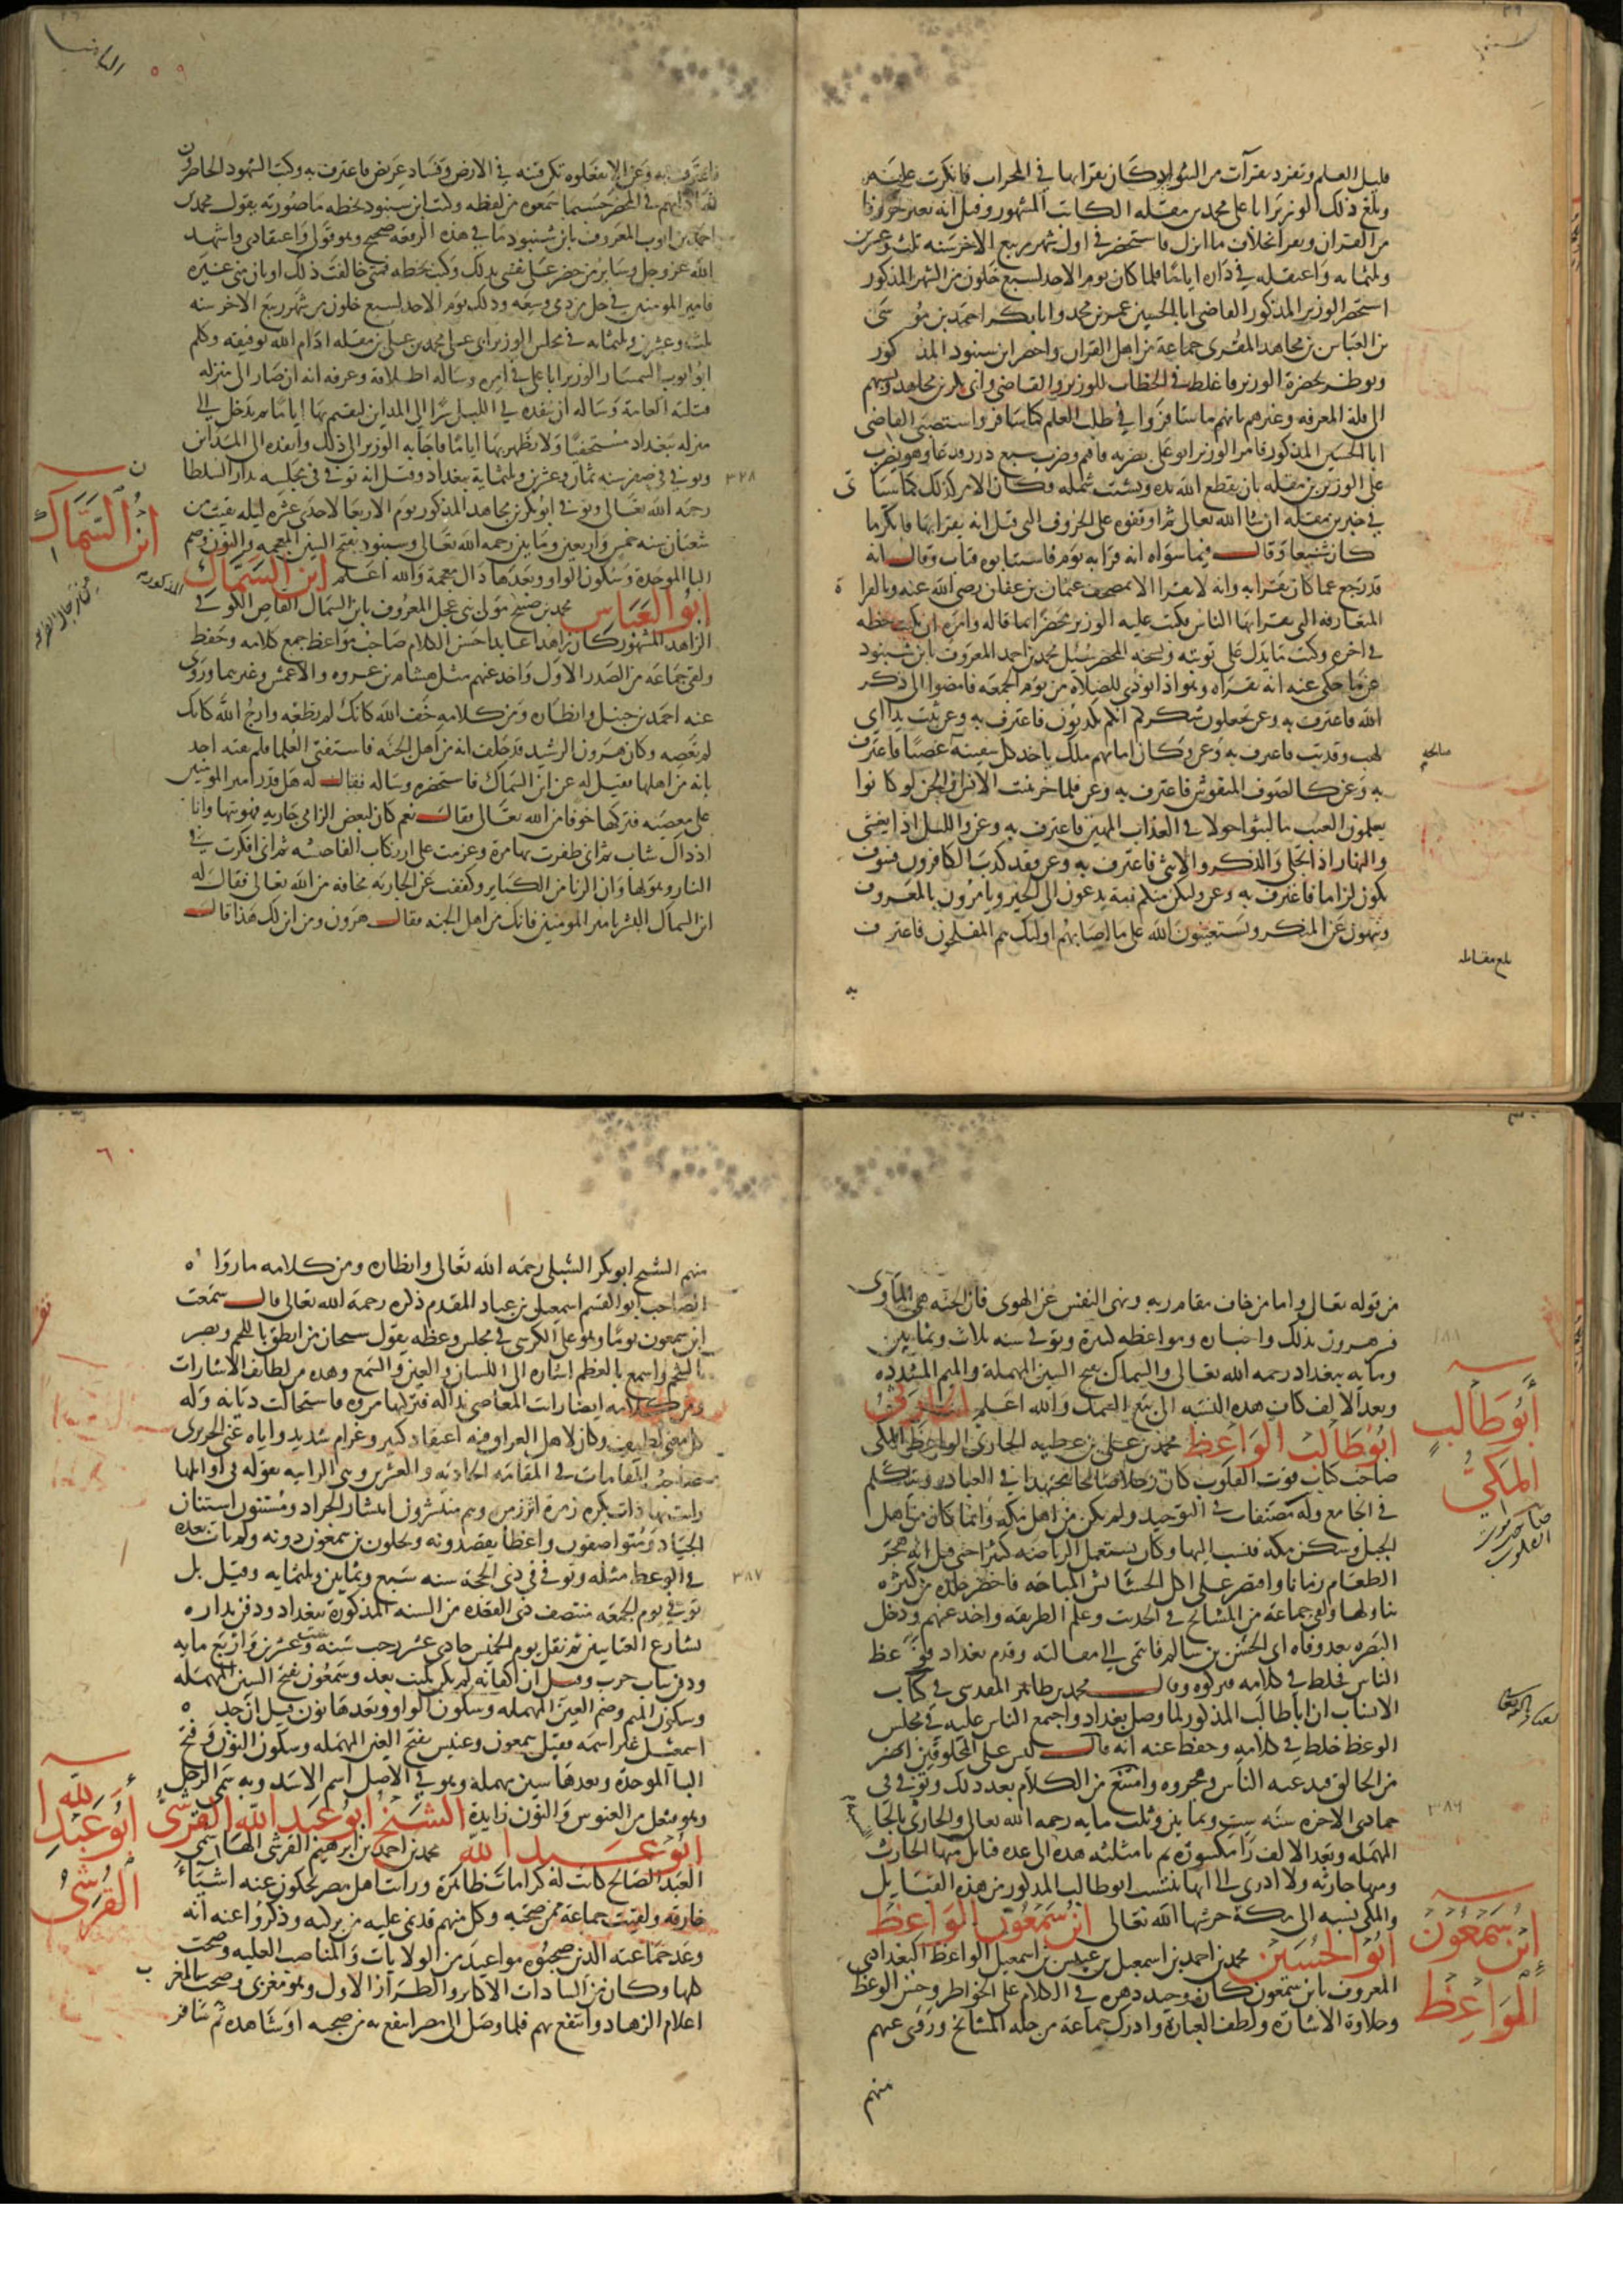 قليل العلم وتفرد بقرآت من الشواذ كان يقرا بها في المحراب فانكرت عليه
وبلغ ذلك الوزير ابا على محمد بن مقله الكاتب المشهور وقيل انه يغير حروفا
من القران ويقرا بخلاف ما انزل فاستحضره في اول شهر ربيع الاخر سنه ثلث وعشرين
وثلثمايه واعتقله في داره اياما فلما كان يوم الاحد لسبع خلون من الشهر المذكور
استحضر الوزير المذكور القاضي ابا الحسين عمر بن محمد وابا بكر احمد بن موسى
بن العباس بن مجاهد المقرى وجماعة من اهل القران واحضر ابن شنبود المذكور
ونوظر بحضرة الوزير فاغلظ في الخطاب للوزير والقاضي وابي بكر بن مجاهد ونسبهم
الى قلة المعرفه وعيرهم بانهم ما سافروا في طلب العلم كما سافر واستصبى القاضي
ابا الحسين المذكور فامر الوزير ابو على بضربه فاقيم وضرب سبع درر ودعا وهو يضرب
على الوزير بن مقله بان يقطع الله يده ويشتت شمله وكان الامر كذلك كما سياتى
في خبر بن مقله ان شا الله تعالى ثم اوقفوه على الحروف التى قيل انه يقرا بها فانكر ما
كان شنيعا وقال فيما سواه انه قرا به قوم فاستتابوه فتاب وقال انه
قد رجع عما كان يقرا به وانه لا يقرا الا بمصحف عثمان بن عفان رضي الله عنه وبالقراة
المتعارفه التى يقرا بها الناس فكتب عليه الوزير محضرا بما قاله وامره ان يكتب خطه
في اخره وكتب ما يدل على توبته ونسخة المحضر سئل محمد بن احمد المعروف بابن شنبود
عن ما حكى عنه انه يقراه وهو اذا نودي للصلاة من يوم الجمعه فامضوا الى ذكر
الله فاعترف به وعن تجعلون شكركم انكم تكذبون فاعترف به وعن تبت يدا ابي
لهب وقد تب فاعترف به وعن وكان امامهم ملك ياخذ كل سفينة غصبا فاعترف
صالحه
به وعن كالصوف المنفوش فاعترف به وعن فلما خر تبينت الانس ان الجن لو كانوا
يعلمون الغيب ما لبثوا حولا في العذاب المهين فاعترف به وعن والليل اذا يغشى
والنهار اذا تجلى والذكر والانثى فاعترف به وعن فقد كذب الكافرون فسوف
يكون لزاما فاعترف به وعن ولتكن منكم فئة يدعون الى الخير ويامرون بالمعروف
وينهون عن المنكر ويستعينون الله على ما اصابهم اوليك هم المفلحون فاعترف
بلغ مقابله
به
٥٩
فاعترف به وعن الا تفعلوه تكن فتنه في الارض وفساد عريض فاعترف به وكتب الشهود الحاضرون
شهاداتهم في المحضر حسبما سمعوه من لفظه وكتب ابن شنبود بخطه ما صورته يقول محمد بن
احمد بن ايوب المعروف بابن شنبود ما في هذه الرقعه صحيح وهو قولى واعتقادى واشهد
الله عز وجل وساير من حضر على نفسى بذلك وكتب بخطه فمتى خالفت ذلك او بان منى غيره
فامير المومنين في حل من دمى وسعه وذلك يوم الاحد لسبع خلون من شهر ربيع الاخر سنه
ثلث وعشرين وثلثمايه في مجلس الوزير ابى على محمد بن على بن مقله ادام الله توفيقه وكلم
ابو ايوب السمسار الوزير ابا على في امره وساله اطلاقه وعرفه انه ان صار الى منزله
قتلته العامة وساله ان ينفذه في الليل سرا الى المداين ليقيم بها اياما ثم يدخل الى
منزله ببغداد مستخفيا ولا يظهر بها اياما فاجابه الوزير الى ذلك وانفذه الى المداين
٣٢٨
وتوفى في صفر سنه ثمان وعشرين وثلثماية ببغداد وقيل انه توفي في محبسه بدار السلطان
رحمه الله تعالى وتوفي ابو بكر بن مجاهد المذكور يوم الاربعا لاحدى عشره ليله بقيت من
ابن السماك
شعبان سنه خمس واربعين ومايتين رحمه الله تعالى وشنبود بفتح الشين المعجمه والنون وضم
البا الموحدة وسكون الواو وبعدها دال معجمة والله اعلم ابن السماك
ابو العباس محمد بن صبيح مولى بنى عجل المعروف بابن السماك القاص الكوفى
الزاهد المشهور كان زاهدا عابدا حسن الكلام صاحب مواعظ جمع كلامه وحفظ
ولقى جماعة من الصدر الاول واخذ عنهم مثل هشام بن عروه والاعمش وغيرهما وروى
عنه احمد بن حنبل وانظاره ومن كلامه خف الله كانك لم تطعه وارج الله كانك
لم تعصه وكان هرون الرشيد قد حلف انه من اهل الجنه فاستفتى العلما فلم يفته احد
بانه من اهلها فقيل له عن ابن السماك فاستحضره وساله فقال له هل قدر امير المومنين
على معصيه فتركها خوفا من الله تعالى فقال نعم كان لبعض الزامى جاريه فهويتها وانا
اذ ذاك شاب ثم انى ظفرت بها مرة وعزمت على ارتكاب الفاحشه ثم انى افكرت في
النار وهولها وان الزنا من الكباير وكففت عن الجاريه مخافه من الله تعالى فقال له
ابن السماك ابشر يا امير المومنين فانك من اهل الجنه فقال هرون ومن اين لك هذا قال
من قوله تعالى واما من خاف مقام ربه ونهى النفس عن الهوى فان الجنه هي الماوى
فسر هرون بذلك واخباره ومواعظه كثيرة وتوفى سنه ثلاث وثمانين
وماية ببغداد رحمه الله تعالى والسماك بفتح السين المهملة والميم المشدده
وبعد الالف كاف هذه النسبه الى بيع السمك والله اعلم
ابو طالب المكي
ابو طالب الواعظ محمد بن على بن عطيه الحارثى الواعظ المكى
صاحب كتاب قوت القلوب كان رجلا صالحا مجتهدا في العبادة ويتكلم
صاحب قوت القلوب
في الجامع وله مصنفات في التوحيد ولم يكن من اهل مكه وانما كان من اهل
الجبل وسكن مكه فنسب اليها وكان يستعمل الرياضه كثيرا حتى قيل انه هجر
الطعام زمانا واقتصر على اكل الحشائش المباحه فاخضر جلده من كثرة
تناولها ولقى جماعة من المشايخ في الحديث وعلم الطريقه واخذ عنهم ودخل
البصره بعد وفاه ابى الحسن بن سالم فانتمى الى مقالته وقدم بغداد فوعظ
الناس فخلط في كلامه فتركوه وقال محمد بن طاهر المقدسى في كتاب
الانساب ان ابا طالب المذكور لما وصل بغداد واجتمع الناس عليه في مجلس
الوعظ خلط في كلامه وحفظ عنه انه قال ليس على المخلوقين اضر
من الخالق فبدعه الناس وهجروه وامتنع من الكلام بعد ذلك وتوفى في
٣٨٦
جمادى الاخره سنه ست وثمانين وثلث مايه رحمه الله تعالى والحارثى بالحا
المهمله وبعد الالف را مكسورة ثم ثا مثلثه هذه الى عدة قبائل منها الحارث
ومنها حارثه ولا ادرى الى ايها ينتسب ابو طالب المذكور من هذه القبايل
والمكى نسبه الى مكة حرسها الله تعالى ابن سمعون الواعظ
ابن سمعون الواعظ
ابو الحسين محمد بن احمد بن اسمعيل بن عنبس بن اسمعيل الواعظ البغدادى
المعروف بابن سمعون كان وحيد دهره في الكلام على الخواطر وحسن الوعظ
وحلاوة الاشارة ولطف العبارة وادرك جماعة من جله المشائخ وروى عنهم
منهم
٦٠
منهم الشيخ ابو بكر الشبلى رحمه الله تعالى وانظاره ومن كلامه ما رواه
الصاحب ابو القسم اسمعيل بن عباد المقدم ذكره رحمه الله تعالى قال سمعت
ابن سمعون يوما وهو على الكرسى في مجلس وعظه يقول سبحان من انطق باللحم وبصر
بالشحم واسمع بالعظم اشاره الى اللسان والعين والسمع وهذه من لطائف الاشارات
ومن كلامه ايضا رايت المعاصى نذالة فتركتها مروه فاستحالت ديانه وله
كل معنى لطيف وكان لاهل العراق فيه اعتقاد كبير وغرام شديد واياه عنى الحريرى
صاحب المقامات في المقامه الحاديه والعشرين وهى الرازيه بقوله في اوائلها
رايت بها ذات بكرة زمرة اثر زمرة وهم منتشرون انتشار الجراد ومستنون استنان
الجياد ومتواصفون واعظا يقصدونه ويحلون بن سمعون دونه ولم يات بعده
٣٨٧
في الوعظ مثله وتوفى في ذى الحجة سنه سبع وثمانين وثلثمايه وقيل بل
توفى يوم الجمعه منتصف ذى القعده من السنه المذكورة ببغداد ودفن بداره
بشارع العتابيين ثم نقل يوم الخميس حادى عشر رجب سنه ست وعشرين واربع مايه
ودفن بباب حرب وقيل ان اكفانه لم تكن بليت بعد وسمعون بفتح السين المهمله
وسكون الميم وضم العين المهمله وسكون الواو وبعدها نون قيل ان جده
اسمعيل غير اسمه فقيل سمعون وعنبس بفتح العين المهمله وسكون النون وفتح
البا الموحدة وبعدها سين مهملة وهو في الاصل اسم الاسد وبه سمى الرجل
وهو فنعل من العبوس والنون زايدة الشيخ ابو عبد الله القرشى
ابو عبد الله القرشى
ابو عبد الله محمد بن احمد بن ابرهيم القرشى الهاشمى
العبد الصالح كانت له كرامات ظاهرة ورايت اهل مصر يحكون عنه اشياء
خارقه ولقيت جماعة ممن صحبه وكل منهم قد نمى عليه من بركته وذكروا عنه انه
وعد جماعته الذين صحبوه مواعيد من الولايات والمناصب العليه وصحت
كلها وكان من السادات الاكابر والطراز الاول وهو مغربى وصحب بالمغرب
اعلام الزهاد وانتفع بهم فلما وصل الى مصر انتفع به من صحبه او شاهده ثم سافر